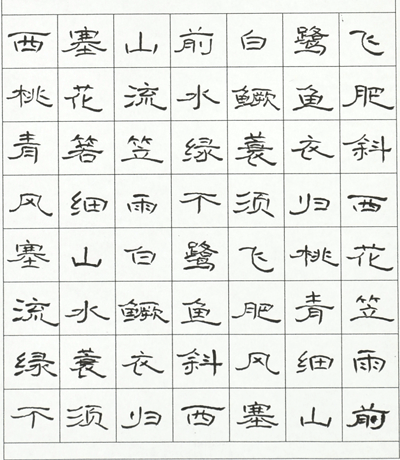 西塞山前白鹭飞
桃花流水鳜鱼肥
青箬笠绿蓑衣斜
风细雨不须归西
塞山白鹭飞桃花
流水鳜鱼肥青笠
绿蓑衣斜风细雨
不须归西塞山前